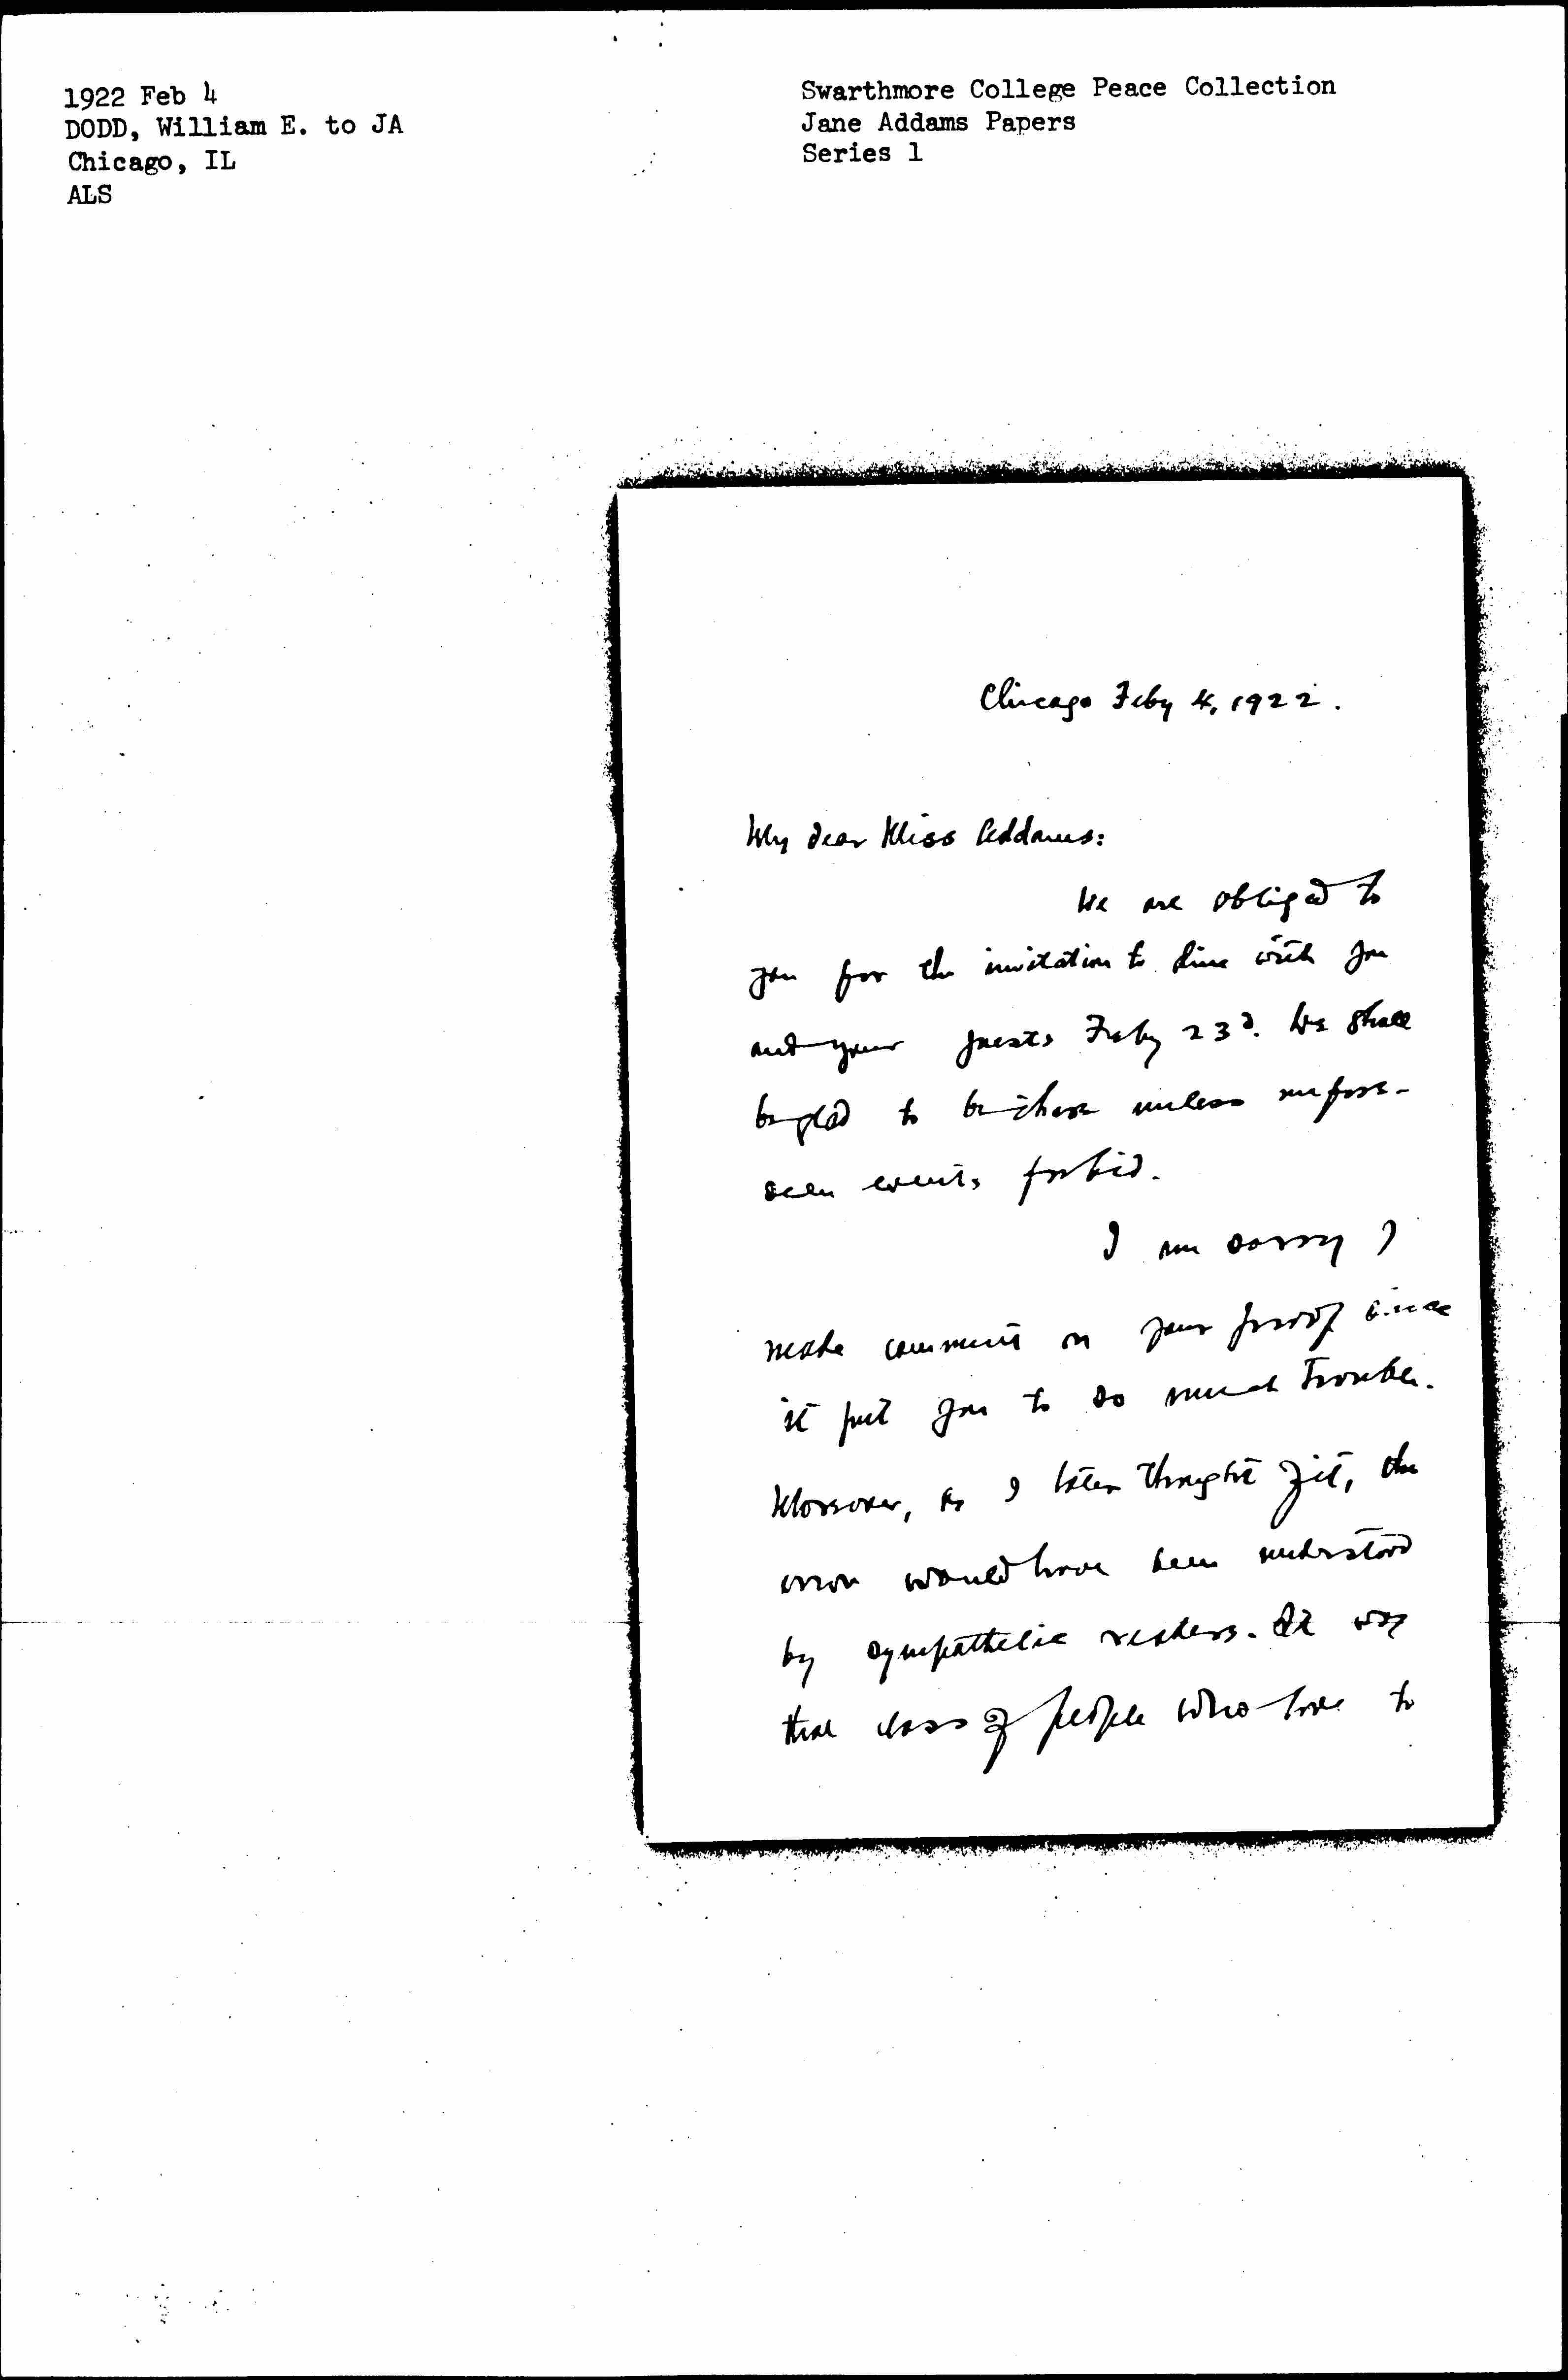 1922 Feb 4
DODD, William E. to JA
Chicago, IL
ALS
Swarthmore College Peace Collection
Jane Addams Papers
Series 1
Chicago Feby 4, 1922.
My dear Miss Addams:
We are obliged to
you for the invitation to dine with you
and your guests Feby 23d. We shall
be glad to be there unless unfore-
seen events forbid.
I am sorry I
made comment on your proof since
it put you to so much trouble.
Moreover, as I later thought of it, the
error would have been understood
by sympathetic readers. It was
that class of people who love to